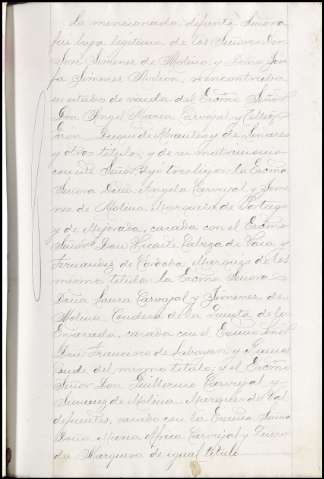 La mencionada difunta Señora
fué hija legitima de los Señores Don
José Jimenez de Molina y Doña
Jimenez
su estado de viuda del Excmo Señor
Don Angel Maria Carvajal y
Gran Duque de Abrantes y de Linares
y otros titulos, y de su matrimonio
con este Señor dejó tres hijos: la Excma
Señora Doña Angela Carvajal y Jime-
nez de Molina, Marquesa de Portago
y de Mejorada, casada con el Excmo
Señor Don Vicente Cabeza de Vaca y
Fernandez de Cordoba, Marques de los
mismos titulos; la Excma Señora
Doña Laura Carvajal y Jimenez de
Molina, Condesa de la Quinta de la
Enjarada, casada con el Excmo Señor
Don Francisco de y
del mismo titulo; y el Excmo
Señor Don Guillermo Carvajal y
Jimenez de Molina, Marques de Val-
defuentes, casado con la Excma Señora
Doña Maria Africa Carvajal y Quesa-
da Marquesa de igual titulo